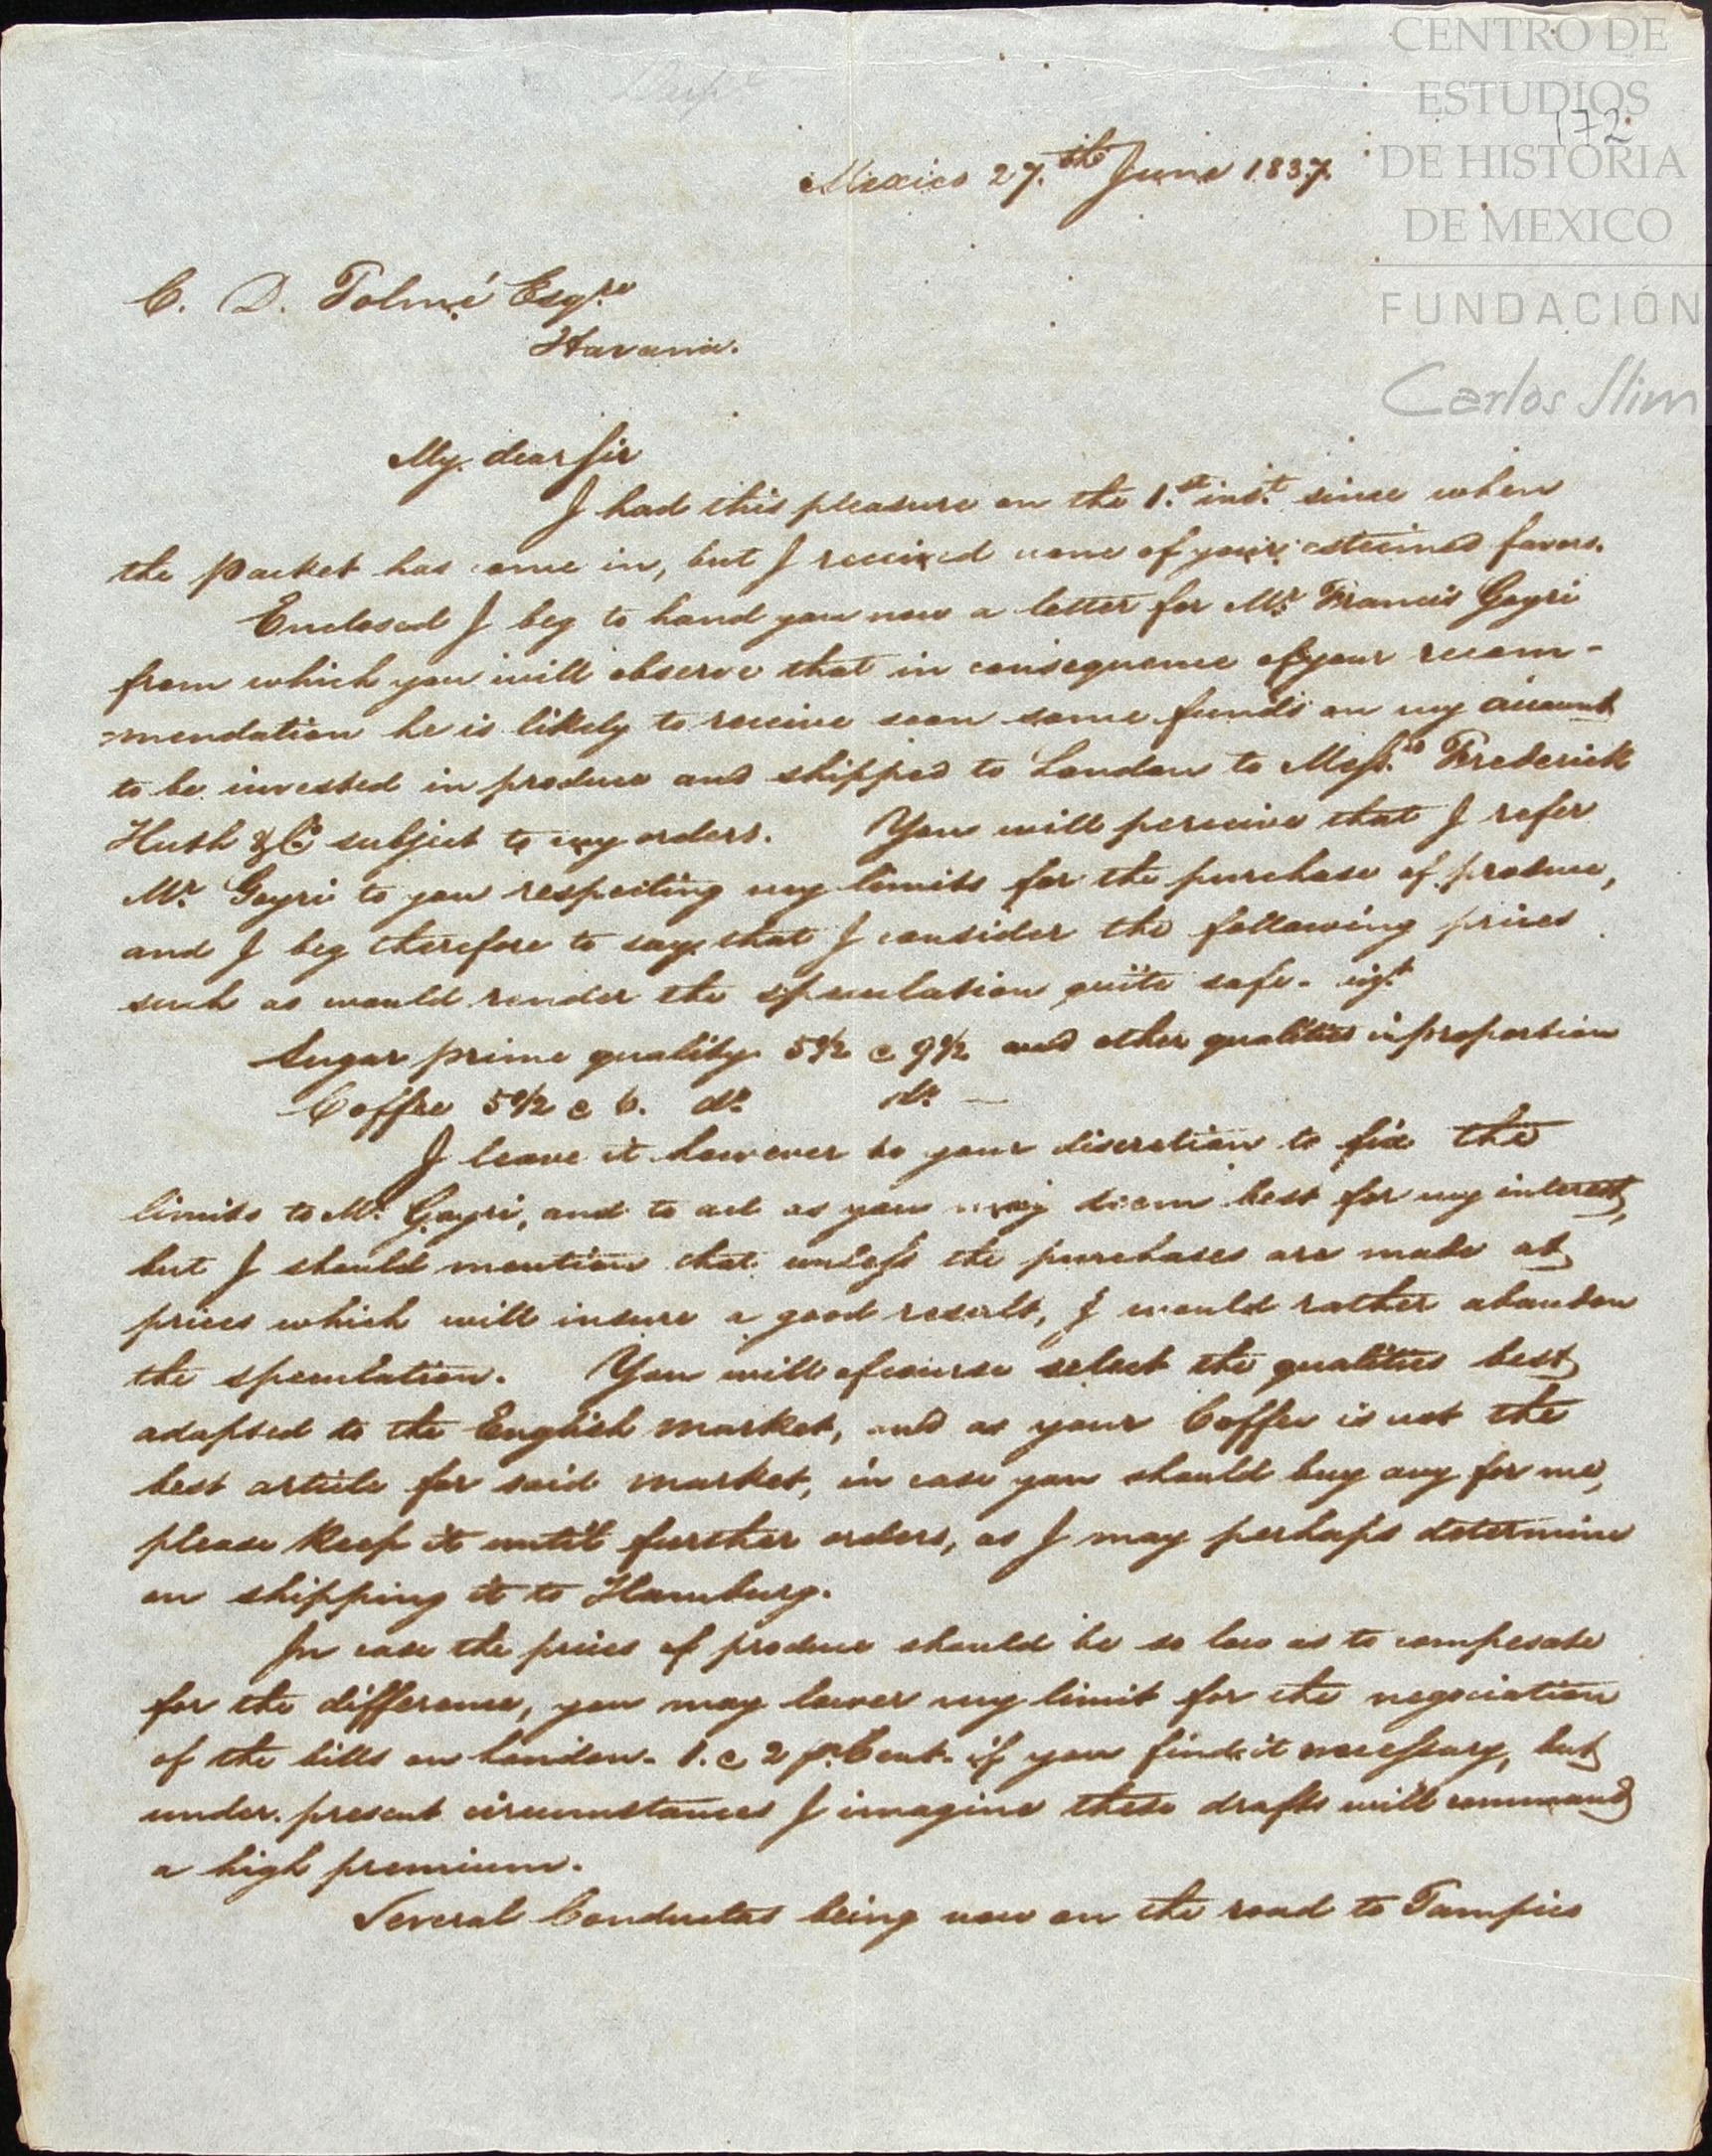 CENTRO DE
ESTUDIOS
172
DE HISTORIA
DE MEXICO
FUNDACIÓN
Carlos Slim
Dupe
Mexico 27.th June 1837.
C. D. Tolmé Esqre
Havana.
My dear Sir
I had this pleasure on the 1.st inst. since when
the packet has come in, but I received none of your esteemed favors.
Enclosed I beg to hand you now a letter for Mr. Francis Goyri
from which you will observe that in consequence of your recom-
mendation he is likely to receive soon some funds on my account
to be invested in produce and shipped to London to Messrs. Frederick
Huth & Co subject to my orders. You will perceive that I refer
Mr. Goyri to you respecting my limits for the purchase of produce,
and I beg therefore to say that I consider the following prices
such as would render the speculation quite safe.
Sugar prime quality 5½ @ 9½ and other qualities in proportion
Coffee 5½ @ 6. do. do. —
I leave it however to your discretion to fix the
limits to Mr. Goyri, and to act as you may deem best for my interest,
but I should mention that unless the purchases are made at
prices which will insure a good result, I would rather abandon
the speculation. You will of course select the qualities best
adapted to the English market, and as your Coffee is not the
best article for said market, in case you should buy any for me,
please keep it until further orders, as I may perhaps determine
on shipping it to Hamburg.
In case the prices of produce should be so low as to compesate
for the difference, you may lower my limit for the negociation
of the bills on London. 1. @ 2 pr. Cent. if you find it necessary, but
under present circumstances I imagine these drafts will command
a high premium.
Several Conductas being now on the road to Tampico